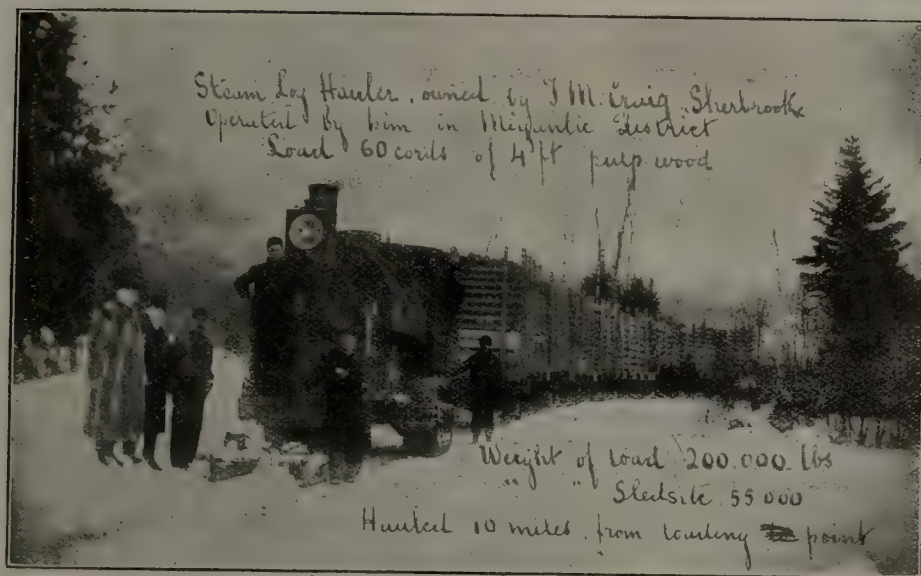 Steam Log Hauler, owned by T M. Craig Sherbrooke
Operated by him in Megantic District
Load 60 cords of 4 ft pulp wood
Weight of Load 200.000 lbs
" " Sleds 55 000
Hauled 10 miles from loading point